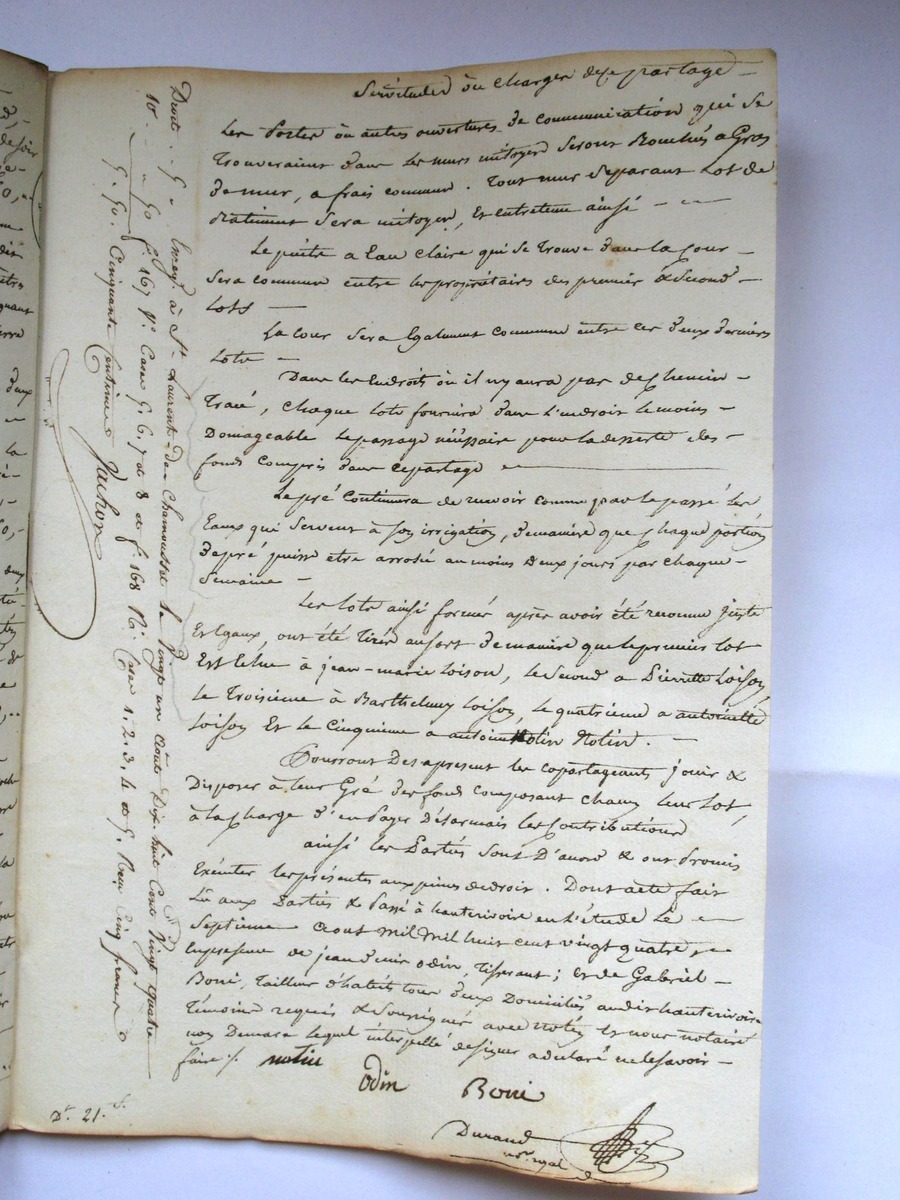 Servitudes ou charges de ce partage
Les Portes ou autres ouvertures de communication qui se
trouveraient dans les murs mitoyen seront Bouchés a Gros
de mur, a frais commun. Tout mur Separant Lot de
Batiment Sera mitoyen, Et entretenu ainsi
Le puits a Eau claire qui Se trouve dans la Cour
Sera commun entre les propriétaires des premier & Second
Lots
La Cour Sera Egalement commune entre ces deux derniers
Lots
Dans les Endroits où il n'y aura pas de Chemin
Tracé, chaque lots fournira dans L'endroit le moins
Domageable le passage néssaire pour la desserte des
fonds compris dans ce partage
Le pré Continuera de recevoir comme par le passé les
Eaux qui Servent à Son irrigation, de maniere que chaque portion
de pré puisse etre arrosée au moins deux jours par chaque
Semaine
Les lots ainsi formés après avoir été reconnu juste
Et Egaux, ont été tirés au sort de maniere que le premier Lot
Est Echu à jean-marie Loison, le Second a Pierrette Loison,
le Troisieme à Barthelemy Loison, le quatrieme a antoinette
Loison Et le Cinquieme a antoine Notin.
Pourront Des a present les copartageants jouir &
Disposer à leur Gré des fonds composant chacun leur Lot,
à la Charge d'en Payer Désormais les Contributions
ainsi les Parties Sont D'acord & ont Promis
Exécuter les présentes aux peines de droit. Dont acte fait
Lu aux Parties & Passé à hauterivoire en L'étude Le
Septieme aout mil Mil huit cent vingt quatre,
En presence de jean denis odin, Tisserant; et de Gabriel
Boni, Tailleur d'habits tous deux Domiciliés audit hauterivoire
Témoins requis & Soussignés avec notin Et nous notaire
non Demare lequel interpellé de signer a declaré ne le savoir
faire /. notin
odin Boni
Durand
no.re royal
Enreg.é à S.t Laurent-de-Chamousset le Vingt un août Dix huit Cent Vingt quatre
f.o 167 V.o Cases 5. 6. 7 et 8 et f.o 168 R.o Cases 1. 2. 3. 4 et 5. Reçu Cinq francs
Cinquante Centimes Jachon
Droits
10
D.t 21.